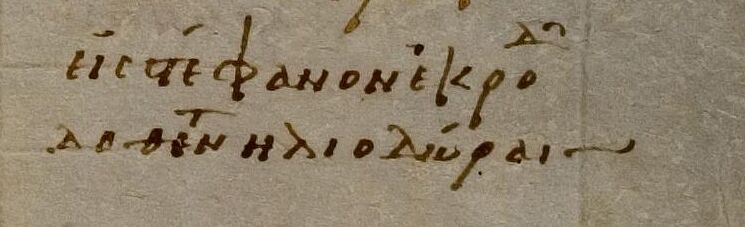 εἰς στέφανον ἐκ ροδ
δοθέντ ἡλιοδώραι